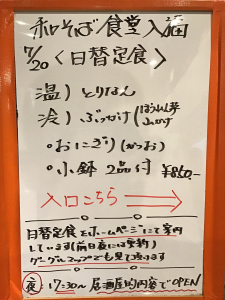 和そば食堂 入福
7/20 〈日替定食〉
温) とりなん
冷) ぶっかけ(ほうれん草
山かけ
・おにぎり(かつお)
・小鉢 2品付 ¥850-
入口こちら →
日替定食をホームページにて案内
しています(前日夜には更新)
グーグルマップでも見て頂けます
夜 17:30〜 居酒屋的内容でOPEN